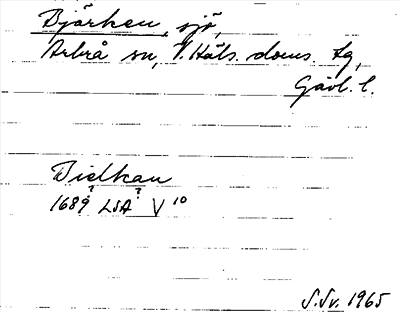 Bjärken, sjö,
Arbrå sn, V. Häls. doms. tg,
Gävl. l.
Bielkan
? ?
1689 LSA V 10
S.Sv. 1965